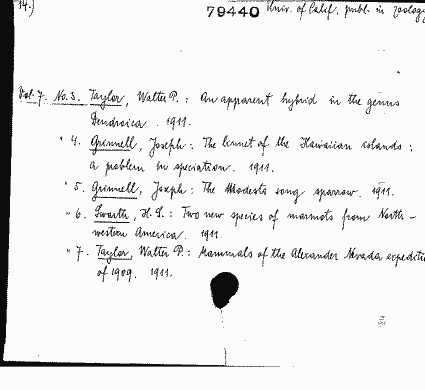 14.) 79440 Univ. of Calif. publ. in zoology
Vol. 7. No. 3. Taylor, Walter P.: An apparent hybrid in the genus
Dendroica. 1911.
" 4. Grinnell, Joseph: The linnet of the Hawaiian islands:
a problem in speciation. 1911.
" 5. Grinnell, Joseph: The Modesto song sparrow. 1911.
" 6. Swarth, H. S.: Two new species of marmots from North-
western America. 1911.
" 7. Taylor, Walter P.: Mammals of the Alexander Nevada expediti
of 1909. 1911.